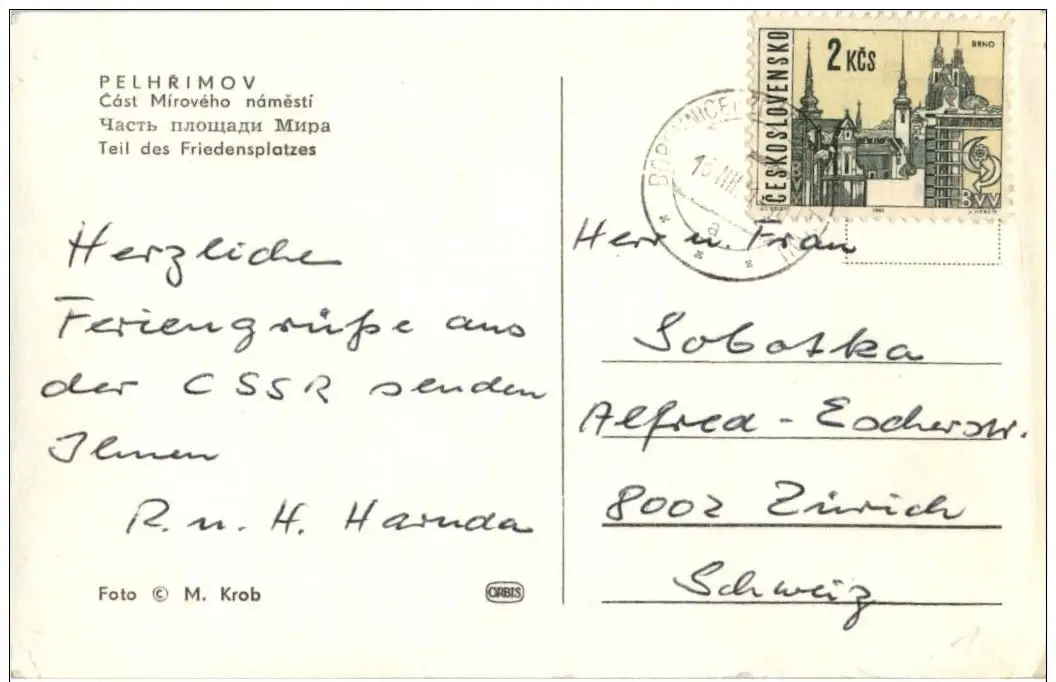 PELHŘIMOV
Část Mírového náměstí
Часть площади Мира
Teil des Friedensplatzes
Herzliche
Feriengrüße aus
der CSSR senden
Ihnen
R. u. H. Harnda
Foto © M. Krob
ORBIS
ČESKOSLOVENSKO
2 KČS
BRNO
BVV
Herr u. Frau
Sobotka
Alfred-Escherstr.
8002 Zürich
Schweiz